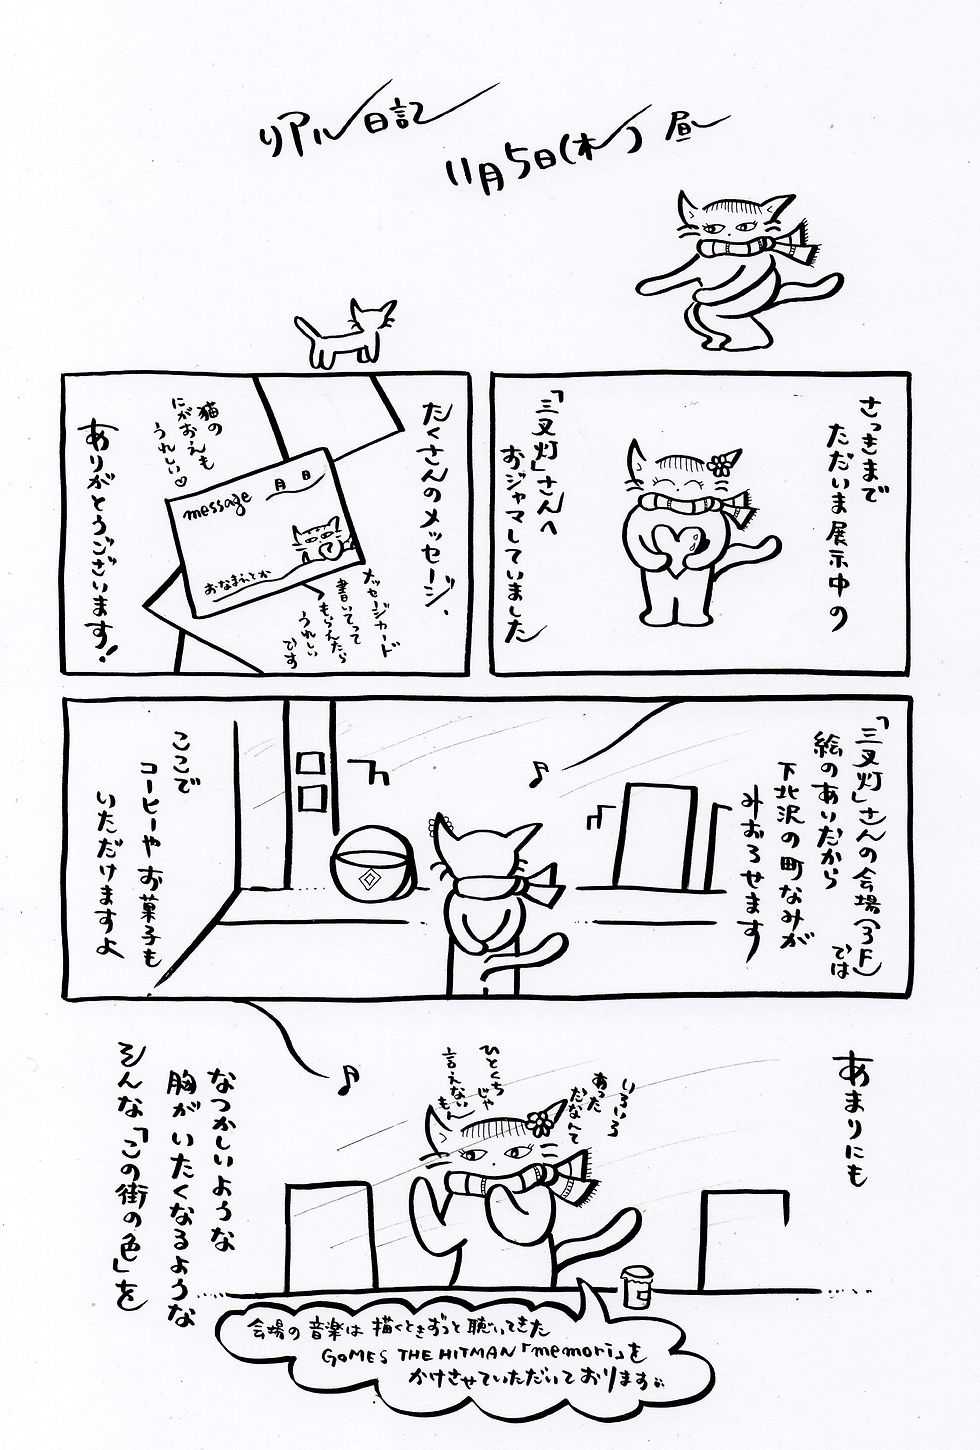 リアル日記
11月5日(木)昼
さっきまで
ただいま展示中の
「三叉灯」さんへ
おジャマしていました
たくさんのメッセージ、
メッセージカード
書いてって
もらえたら
うれしい
です
message
月 日
おなまえとか
猫の
にがおえも
うれしい♡
ありがとうございます!
「三叉灯」さんの会場(3F)
では
絵のあいだから
下北沢の町なみが
みおろせます
♪
ここで
コーヒーやお菓子も
いただけますよ
あまりにも
いろいろ
あった
だなんて
ひとくち
じゃ
言えない
もん
♪
なつかしいような
胸がいたくなるような
そんな「この街の色」を
会場の音楽は描くときずっと聴いてきた
GOMES THE HITMAN「memori」を
かけさせていただいております。